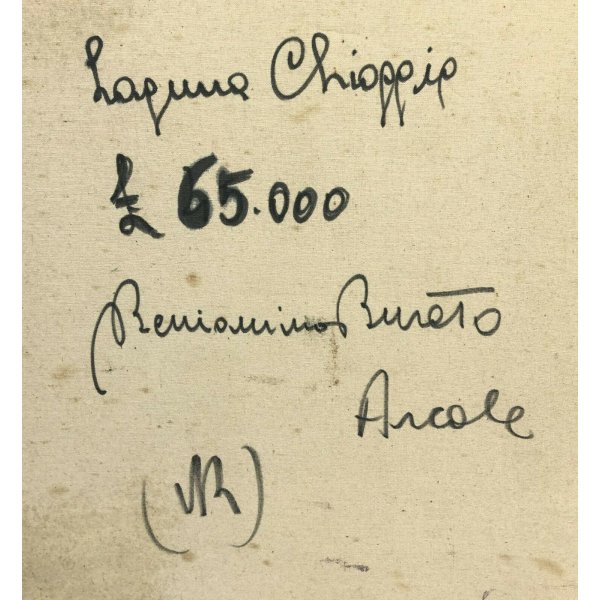 Laguna Chioggia
£ 65.000
Beniamino Burato
Arcole
(VR)